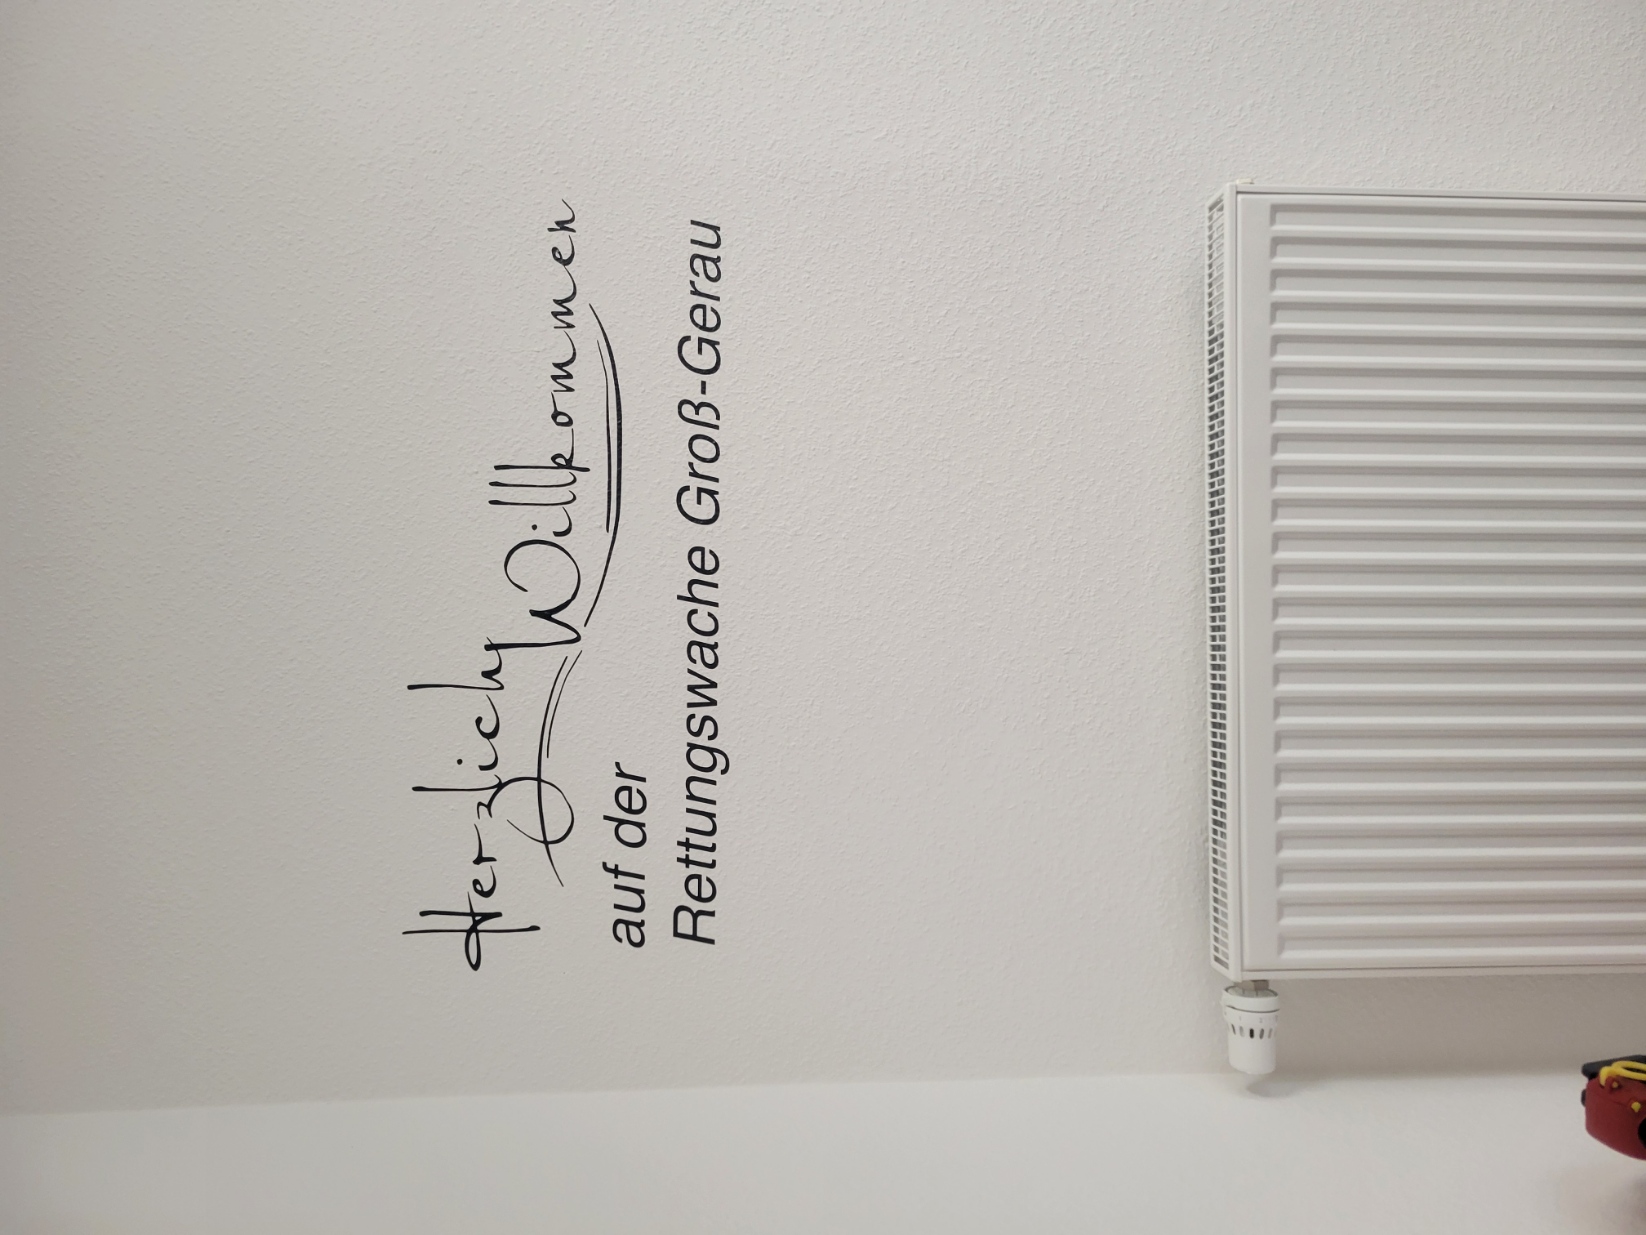 Herzlich Willkommen
auf der
Rettungswache Groß-Gerau